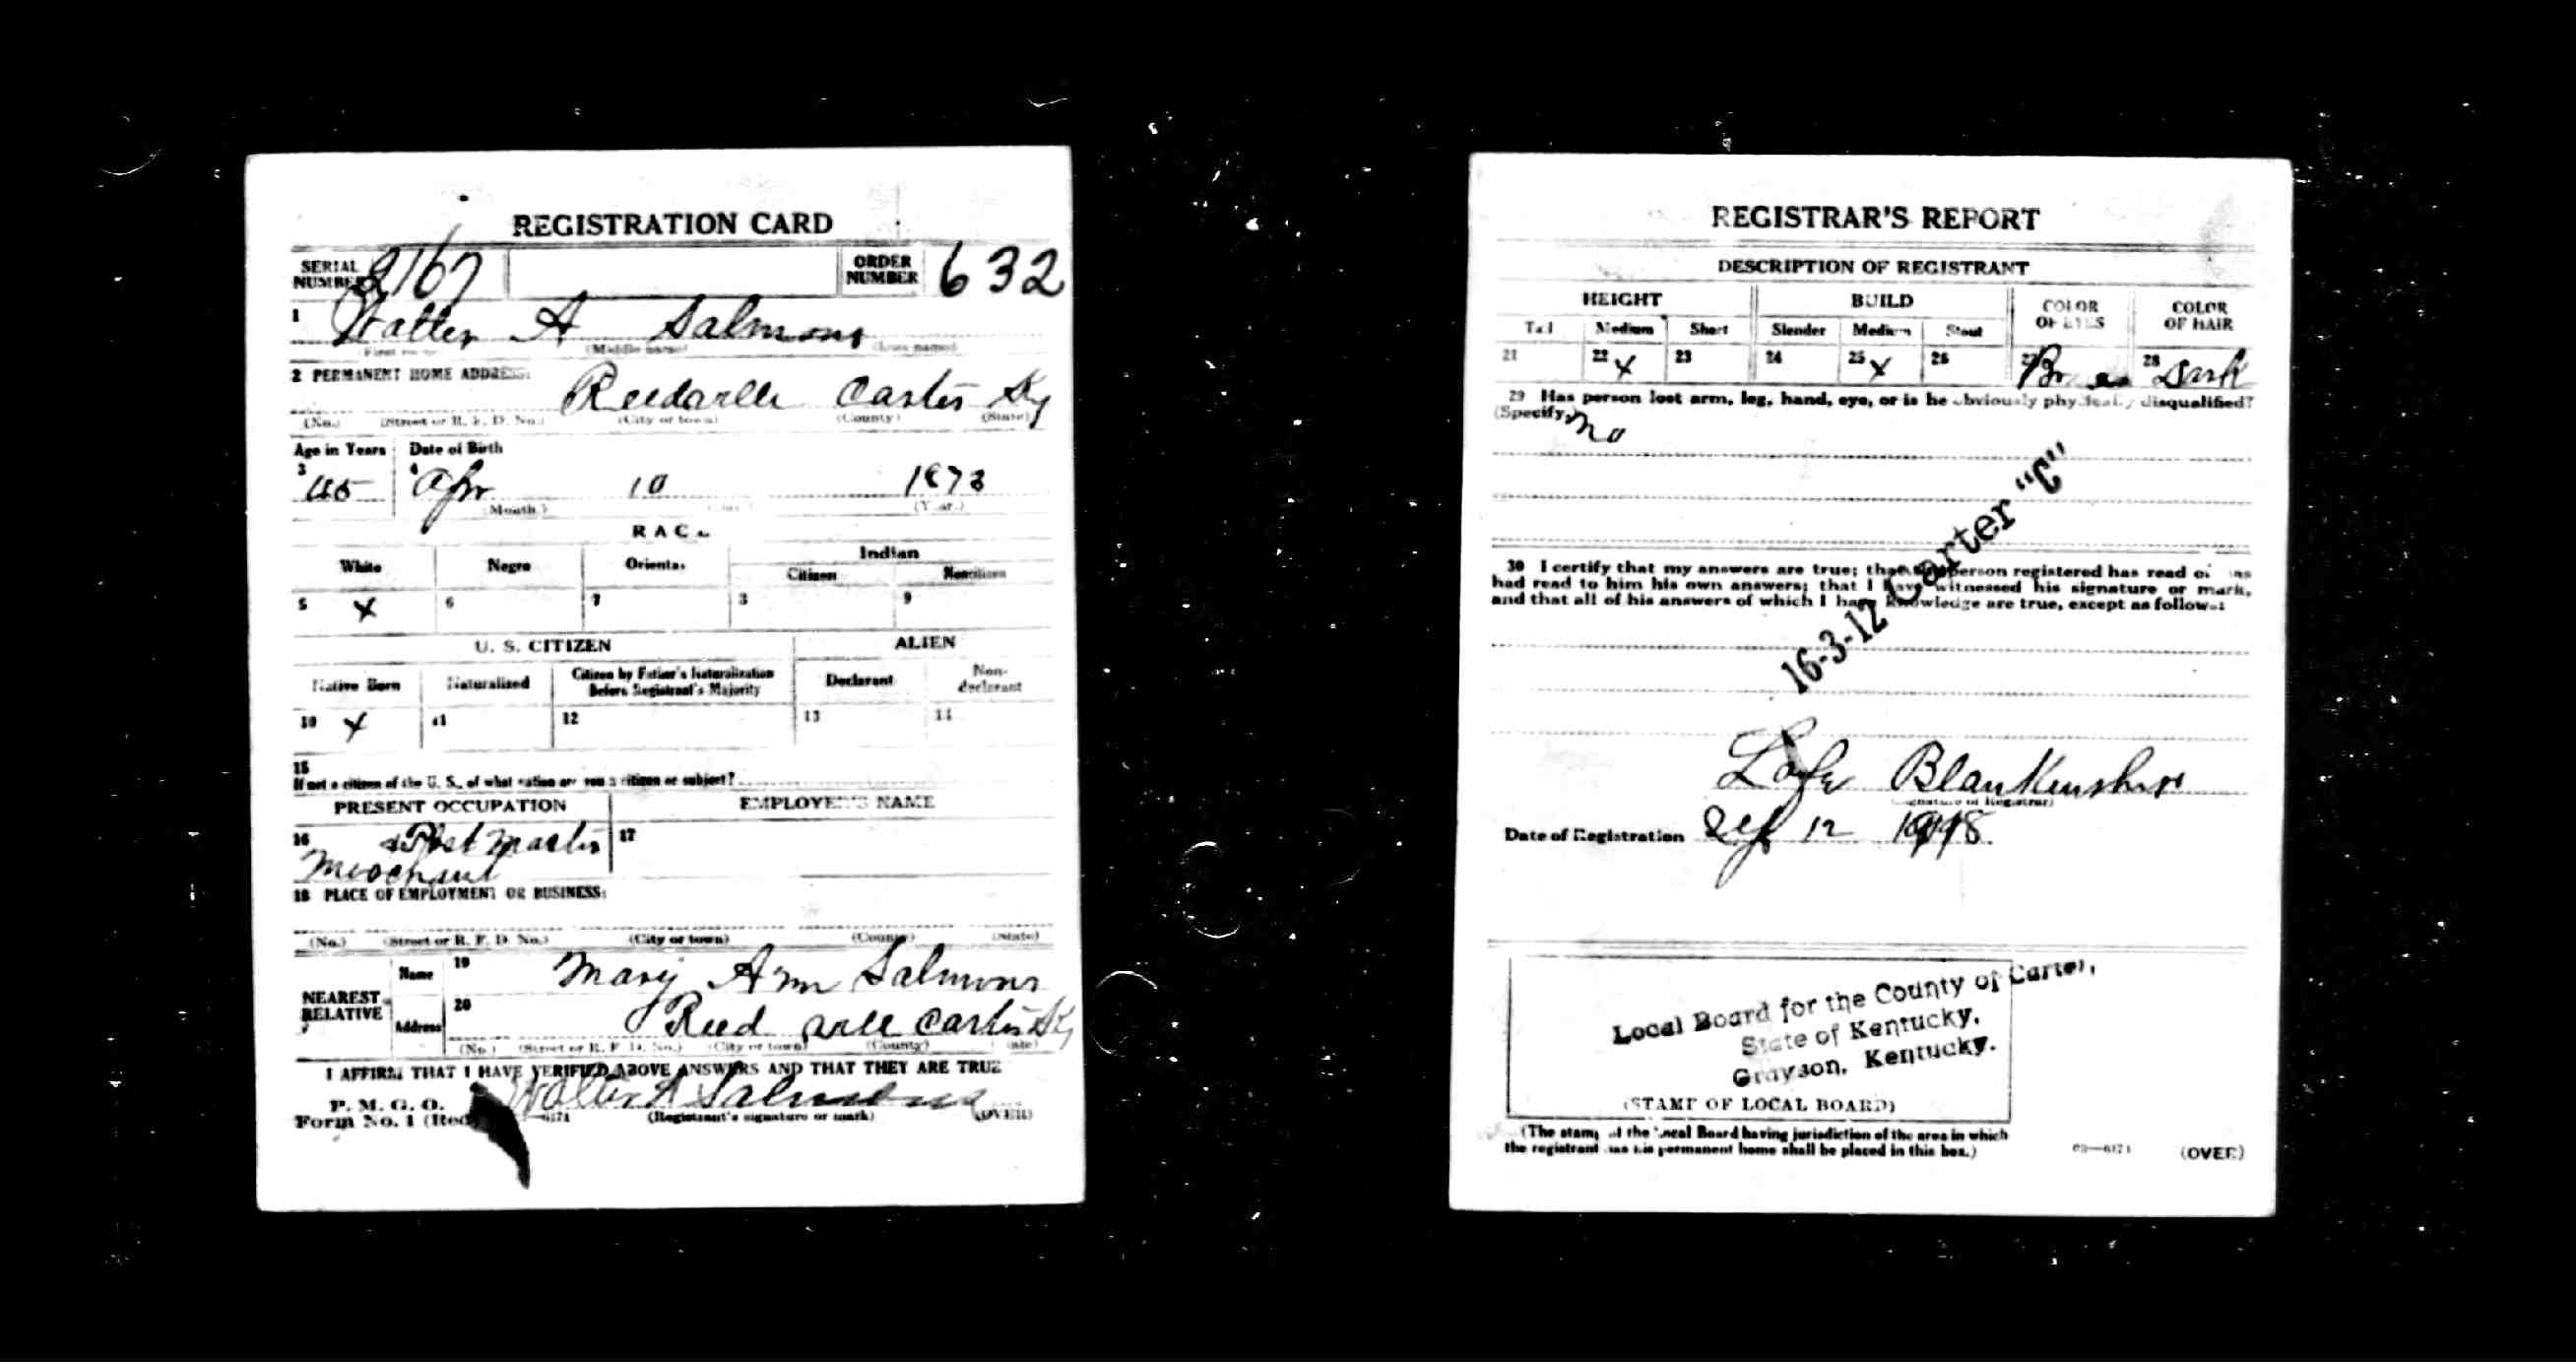 REGISTRATION CARD
SERIAL NUMBER 2167 ORDER NUMBER 632
1 Walter A Salmons
(First name) (Middle name) (Last name)
2 PERMANENT HOME ADDRESS:
Reedville Carter Ky
(No.) (Street or R. F. D. No.) (City or town) (County) (State)
Age in Years Date of Birth
3 45 4 Apr 10 1873
(Month.) (Day.) (Year.)
RACE
White Negro Oriental Indian
Citizen Noncitizen
5 X 6 7 8 9
U. S. CITIZEN ALIEN
Native Born Naturalized Citizen by Father's Naturalization Before Registrant's Majority Declarant Non-declarant
10 X 11 12 13 14
15
If not a citizen of the U. S., of what nation are you a citizen or subject?
PRESENT OCCUPATION EMPLOYER'S NAME
16 & Post Master 17
Merchant
18 PLACE OF EMPLOYMENT OR BUSINESS:
(No.) (Street or R. F. D. No.) (City or town) (County) (State)
NEAREST RELATIVE Name 19 Mary Ann Salmons
Address 20 Reedville Carter Ky
(No.) (Street or R. F. D. No.) (City or town) (County) (State)
I AFFIRM THAT I HAVE VERIFIED ABOVE ANSWERS AND THAT THEY ARE TRUE
P. M. G. O.
Form No. 1 (Red) Walter A Salmons
(Registrant's signature or mark) (OVER)
REGISTRAR'S REPORT
DESCRIPTION OF REGISTRANT
HEIGHT BUILD COLOR OF EYES COLOR OF HAIR
Tall Medium Short Slender Medium Stout
21 22 X 23 24 25 X 26 27 28 Dark
29 Has person lost arm, leg, hand, eye, or is he obviously physically disqualified?
(Specify.) no
16-3-12 Carter "C"
30 I certify that my answers are true; that the person registered has read or has
had read to him his own answers; that I have witnessed his signature or mark,
and that all of his answers of which I have knowledge are true, except as follows:
Lafe Blankenship
(Signature of Registrar)
Date of Registration Sep 12 1918
Local Board for the County of Carter,
State of Kentucky,
Grayson, Kentucky.
(STAMP OF LOCAL BOARD)
(The stamp of the Local Board having jurisdiction of the area in which
the registrant has his permanent home shall be placed in this box.)
03—6171 (OVER)